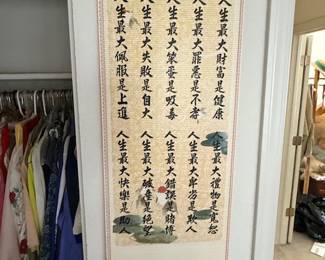 人生最大財富是健康
人生最大罪惡是不孝
人生最大笨蛋是吸毒
人生最大失敗是自大
人生最大佩服是上進
人生最大禮物是寬恕
人生最大卑劣是欺人
人生最大錯誤是賭博
人生最大破產是絕望
人生最大快樂是助人